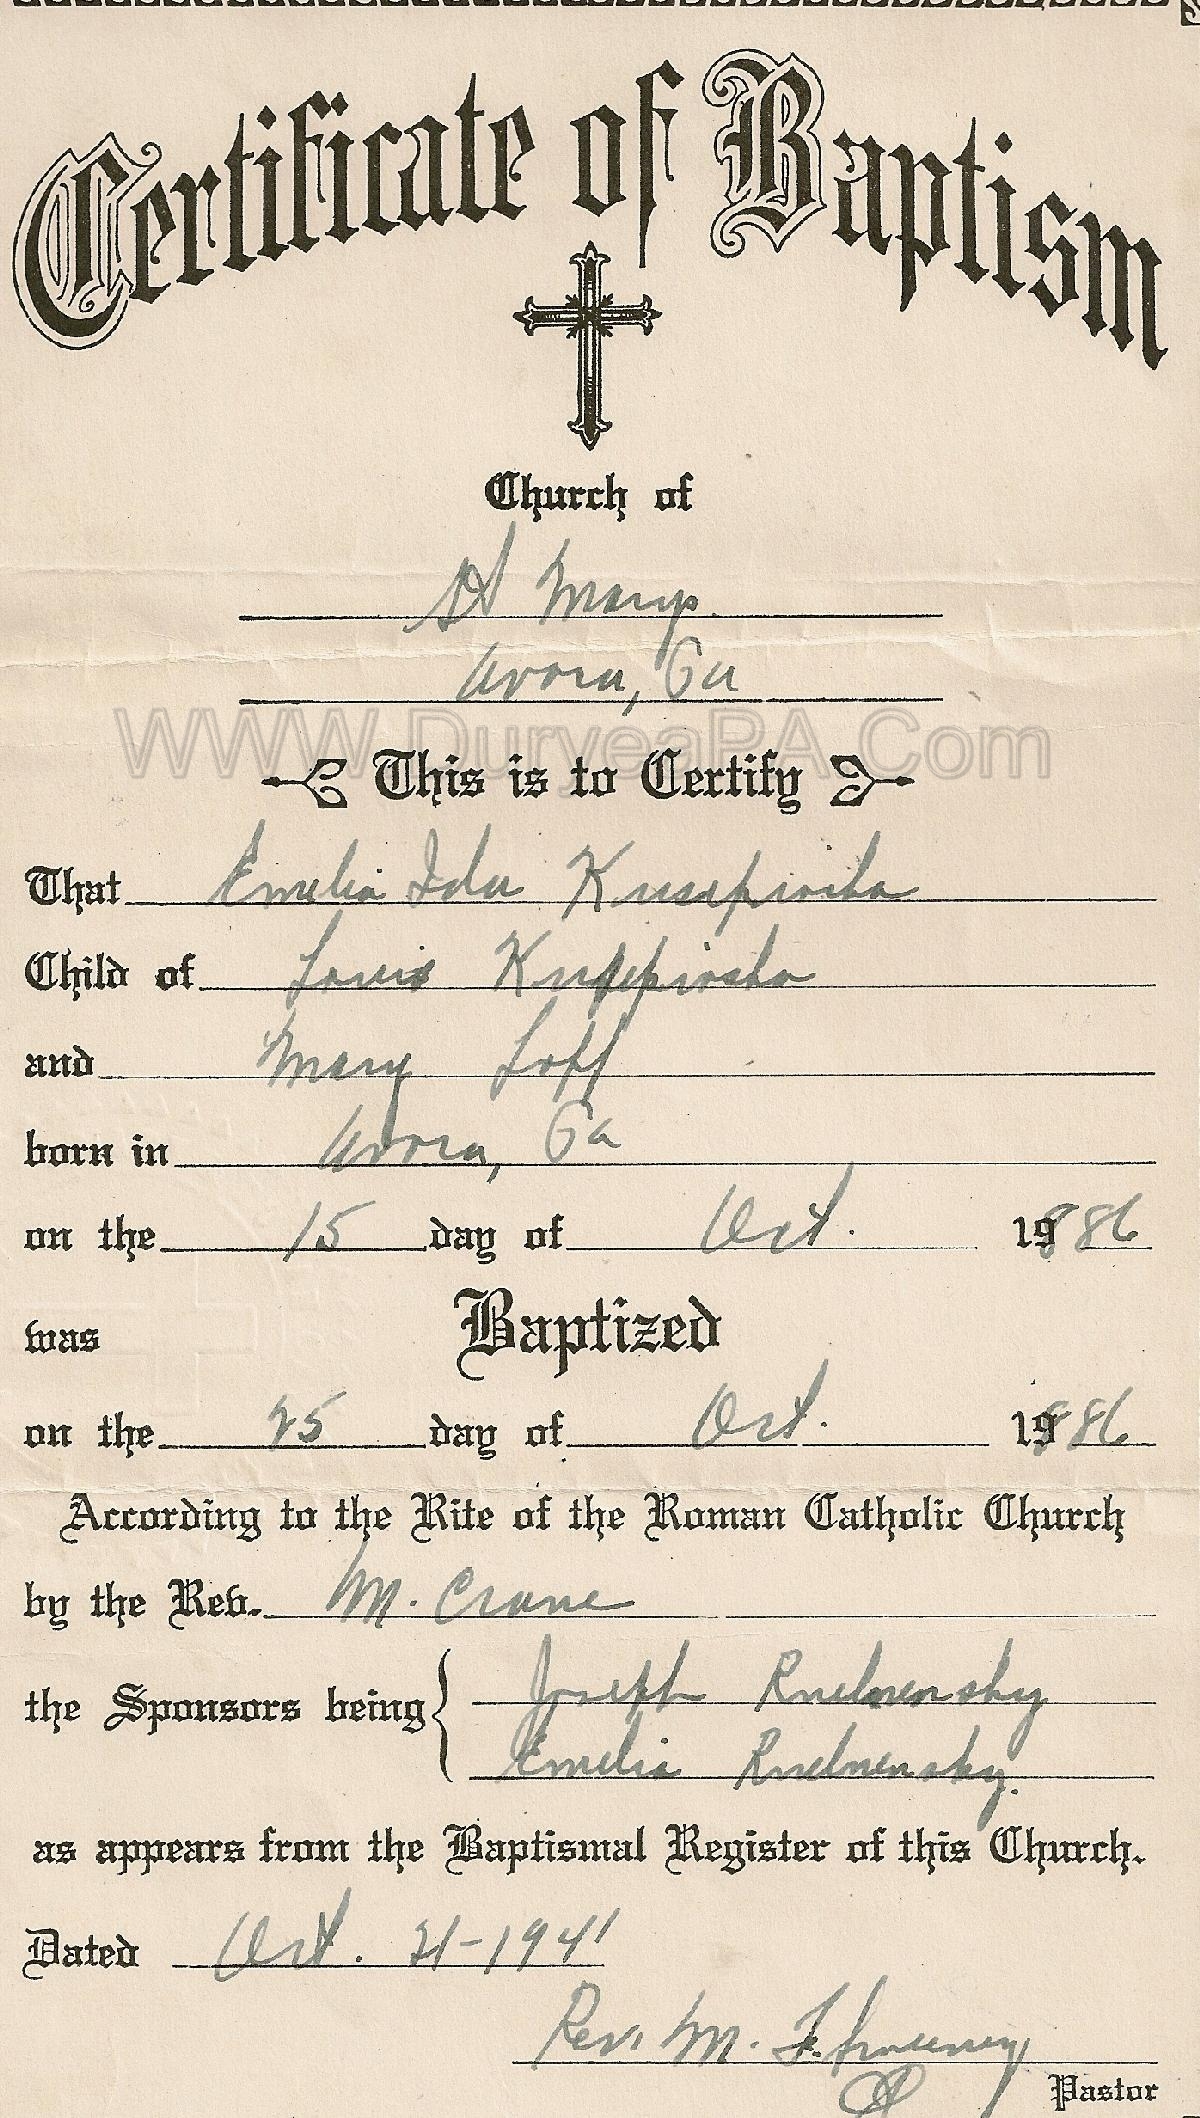 Certificate of Baptism
Church of
St Marys.
Avoca, Pa
WWW.DuryeaPA.Com
This is to Certify
That Emelia Ida
Child of Louis
and Mary Loff
born in Avoca, Pa
on the 15 day of Oct. 1886
was Baptized
on the 25 day of Oct. 1886
According to the Rite of the Roman Catholic Church
by the Rev. M. Crane
the Sponsors being { Joseph
Emelia
as appears from the Baptismal Register of this Church.
Dated Oct. 21-1941
Rev. M. F. Sweeney
Pastor